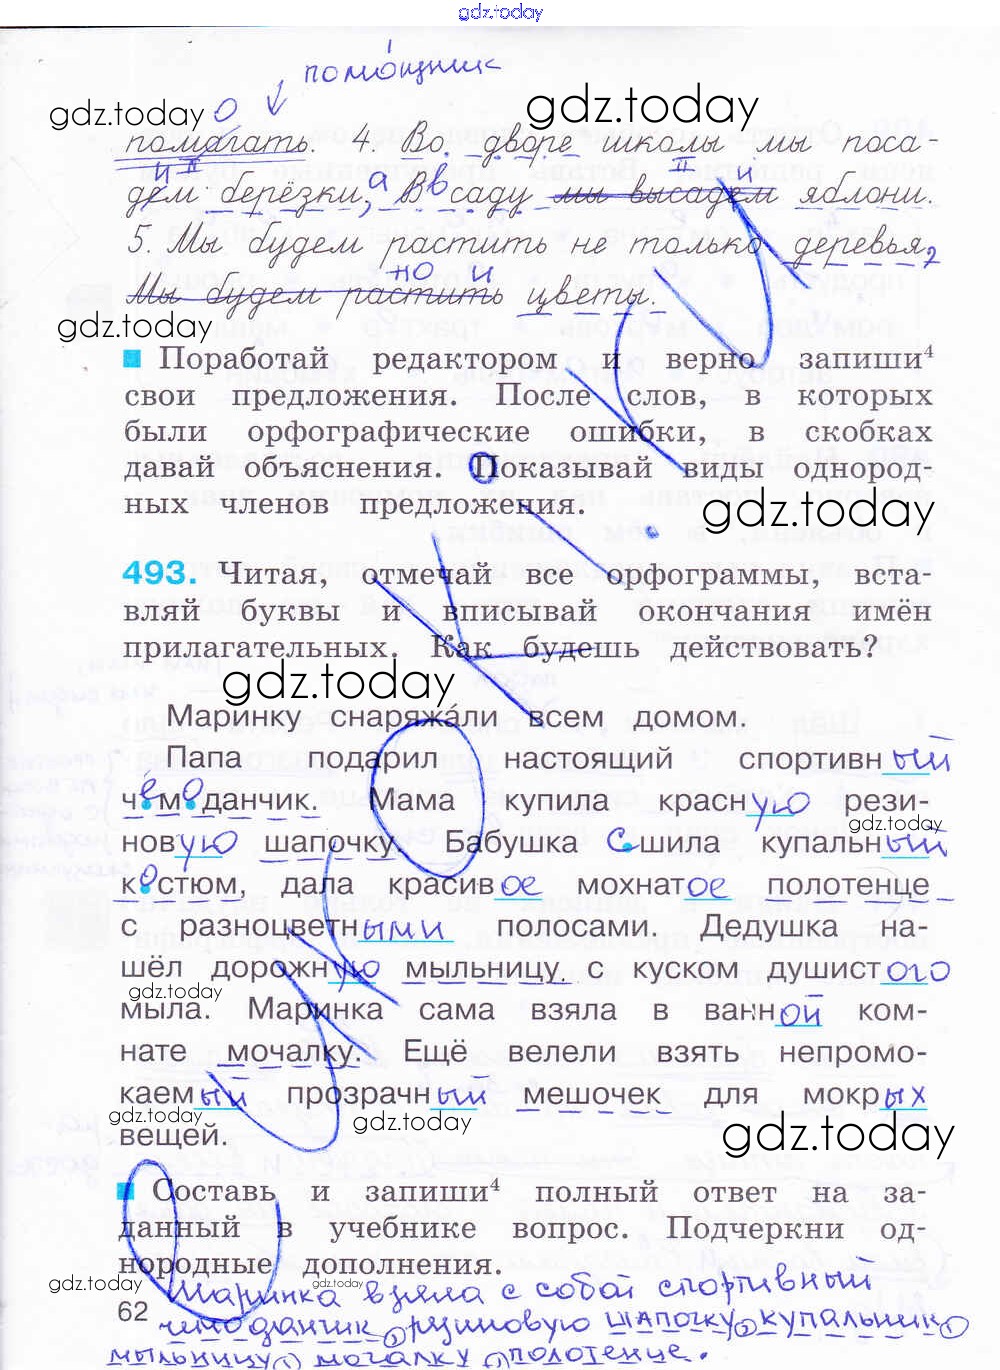 gdz.today
помóщник
gdz.today о gdz.today
помагать. 4. Во дворе школы мы поса-
и и
дем берёзки, а В в саду мы высадем яблони.
5. Мы будем растить не только деревья,
но и
Мы будем растить цветы.
gdz.today
Поработай редактором и верно запиши⁴
свои предложения. После слов, в которых
были орфографические ошибки, в скобках
давай объяснения. Показывай виды однород-
ных членов предложения.
gdz.today
493. Читая, отмечай все орфограммы, вста-
вляй буквы и вписывай окончания имён
прилагательных. Как будешь действовать?
gdz.today
Маринку снаряжáли всем домом.
Папа подарил настоящий спортивный
чемоданчик. Мама купила красную рези-
gdz.today
новую шапочку. Бабушка сшила купальный
костюм, дала красивое мохнатое полотенце
с разноцветными полосами. Дедушка на-
шёл дорожную мыльницу с куском душистого
gdz.today
мыла. Маринка сама взяла в ванной ком-
нате мочалку. Ещё велели взять непромо-
каемый прозрачный мешочек для мокрых
gdz.today gdz.today gdz.today
вещей.
Составь и запиши⁴ полный ответ на за-
данный в учебнике вопрос. Подчеркни од-
нородные дополнения.
gdz.today gdz.today gdz.today
Маринка взяла с собой спортивный
62 чемоданчик, резиновую шапочку, купальник,
мыльницу, мочалку, полотенце.